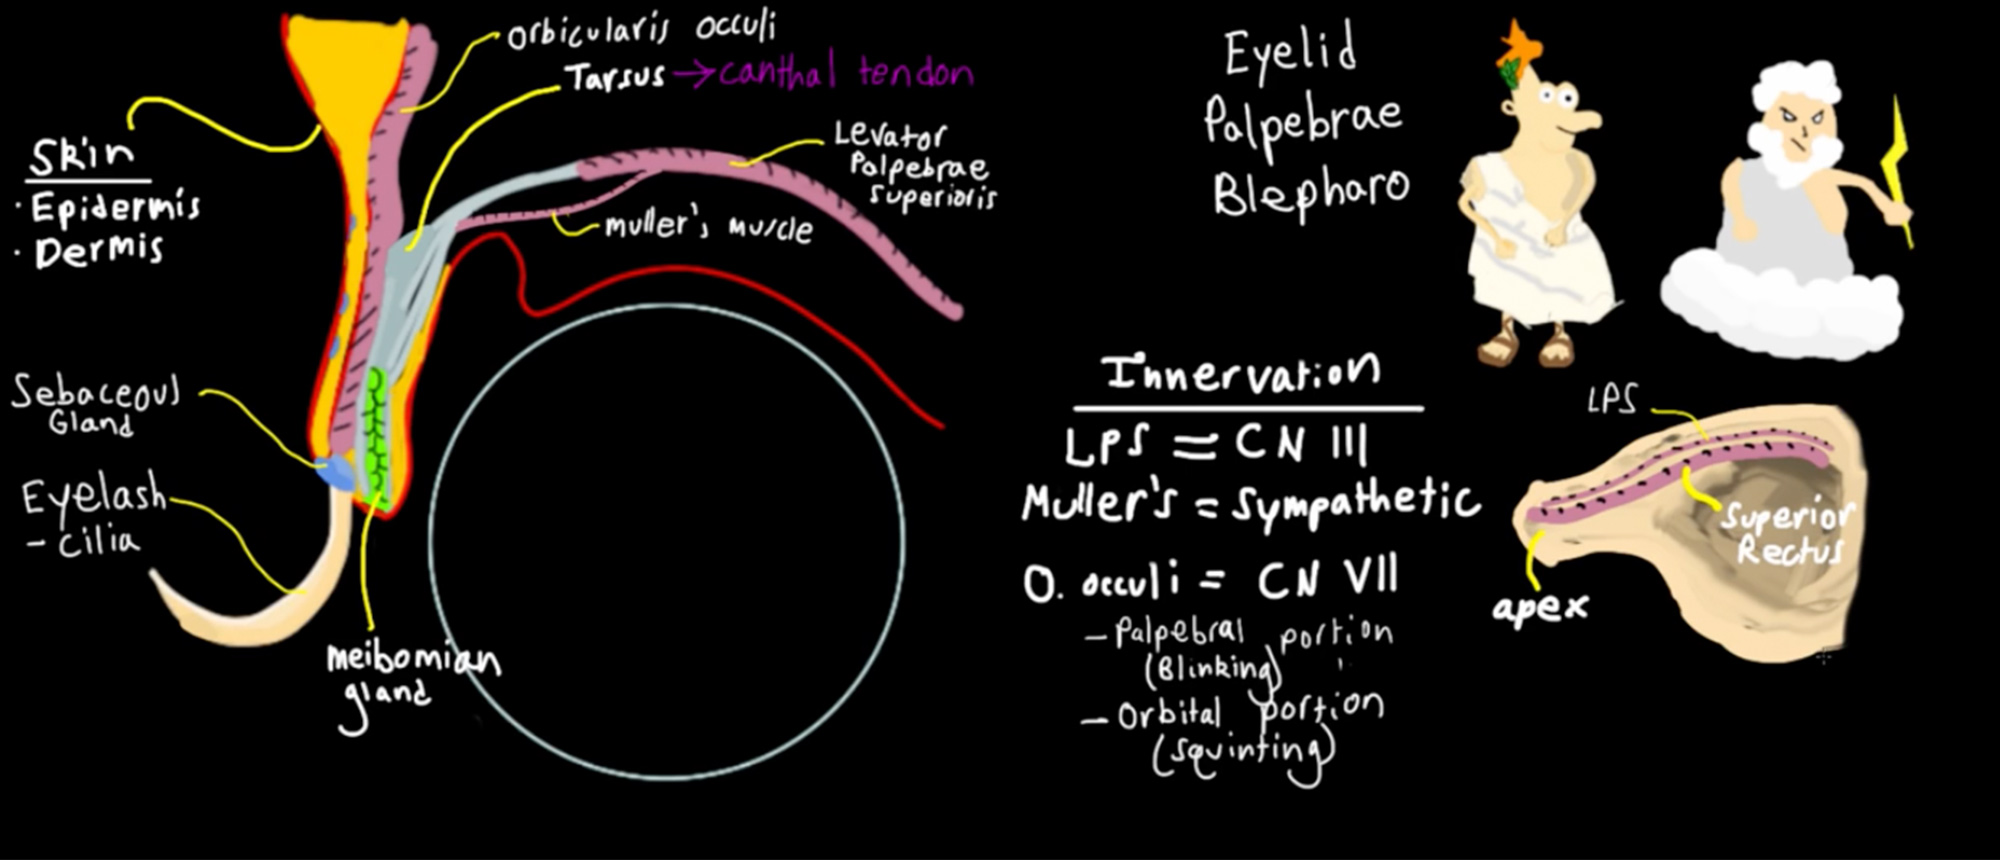 Orbicularis occuli
Tarsus → canthal tendon
Levator
Palpebrae
Superioris
muller's muscle
Skin
· Epidermis
· Dermis
Sebaceous
Gland
Eyelash
- cilia
meibomian
gland
Eyelid
Palpebrae
Blepharo
Innervation
LPS = CN III
Muller's = Sympathetic
O. occuli = CN VII
- Palpebral portion
(Blinking)
- Orbital portion
(squinting)
LPS
Superior
Rectus
apex